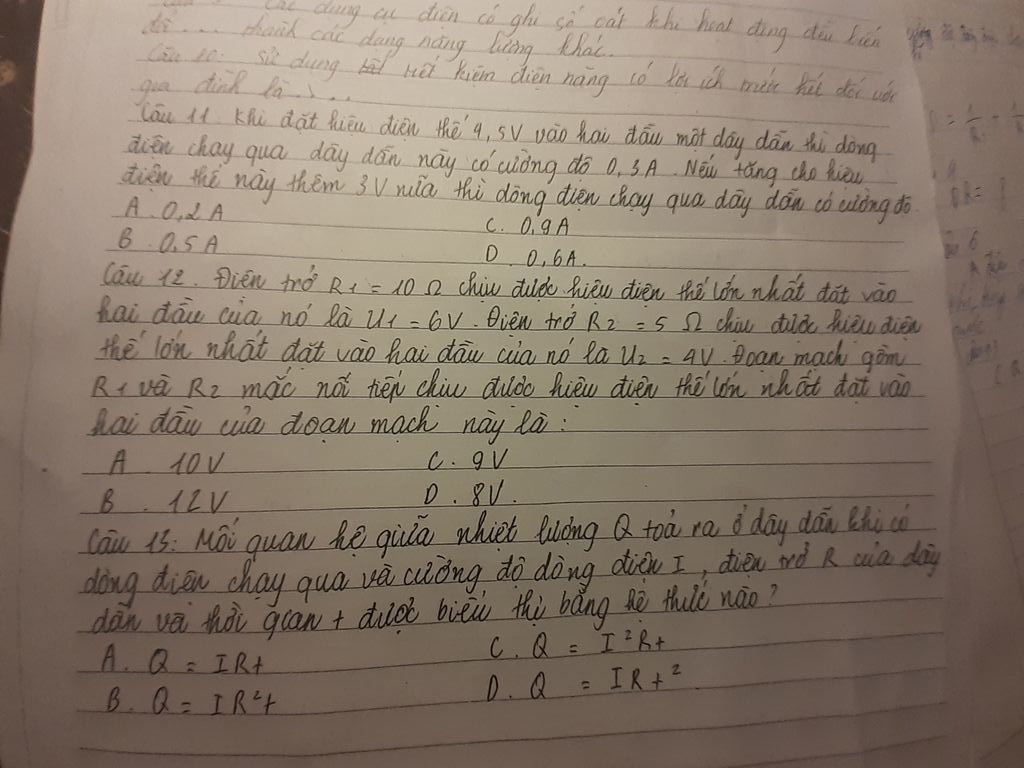 các dụng cụ điện có ghi số oát khi hoạt động đều biến
đổi ... thành các dạng năng lượng khác.
Câu 10: Sử dụng tiết kiệm điện năng có lợi ích trước hết đối với
gia đình là ....
Câu 11. Khi đặt hiệu điện thế 4,5V vào hai đầu một dây dẫn thì dòng
điện chạy qua dây dẫn này có cường độ 0,3A. Nếu tăng cho hiệu
điện thế này thêm 3V nữa thì dòng điện chạy qua dây dẫn có cường độ
A. 0,2A C. 0,9A
B. 0,5A D. 0,6A.
Câu 12. Điện trở R1 = 10 Ω chịu được hiệu điện thế lớn nhất đặt vào
hai đầu của nó là U1 = 6V. Điện trở R2 = 5 Ω chịu được hiệu điện
thế lớn nhất đặt vào hai đầu của nó là U2 = 4V. Đoạn mạch gồm
R1 và R2 mắc nối tiếp chịu được hiệu điện thế lớn nhất đặt vào
hai đầu của đoạn mạch này là:
A. 10V C. 9V
B. 12V D. 8V.
Câu 13: Mối quan hệ giữa nhiệt lượng Q toả ra ở dây dẫn khi có
dòng điện chạy qua và cường độ dòng điện I, điện trở R của dây
dẫn và thời gian t được biểu thị bằng hệ thức nào?
A. Q = IRt C. Q = I²Rt
B. Q = IR²t D. Q = IRt²